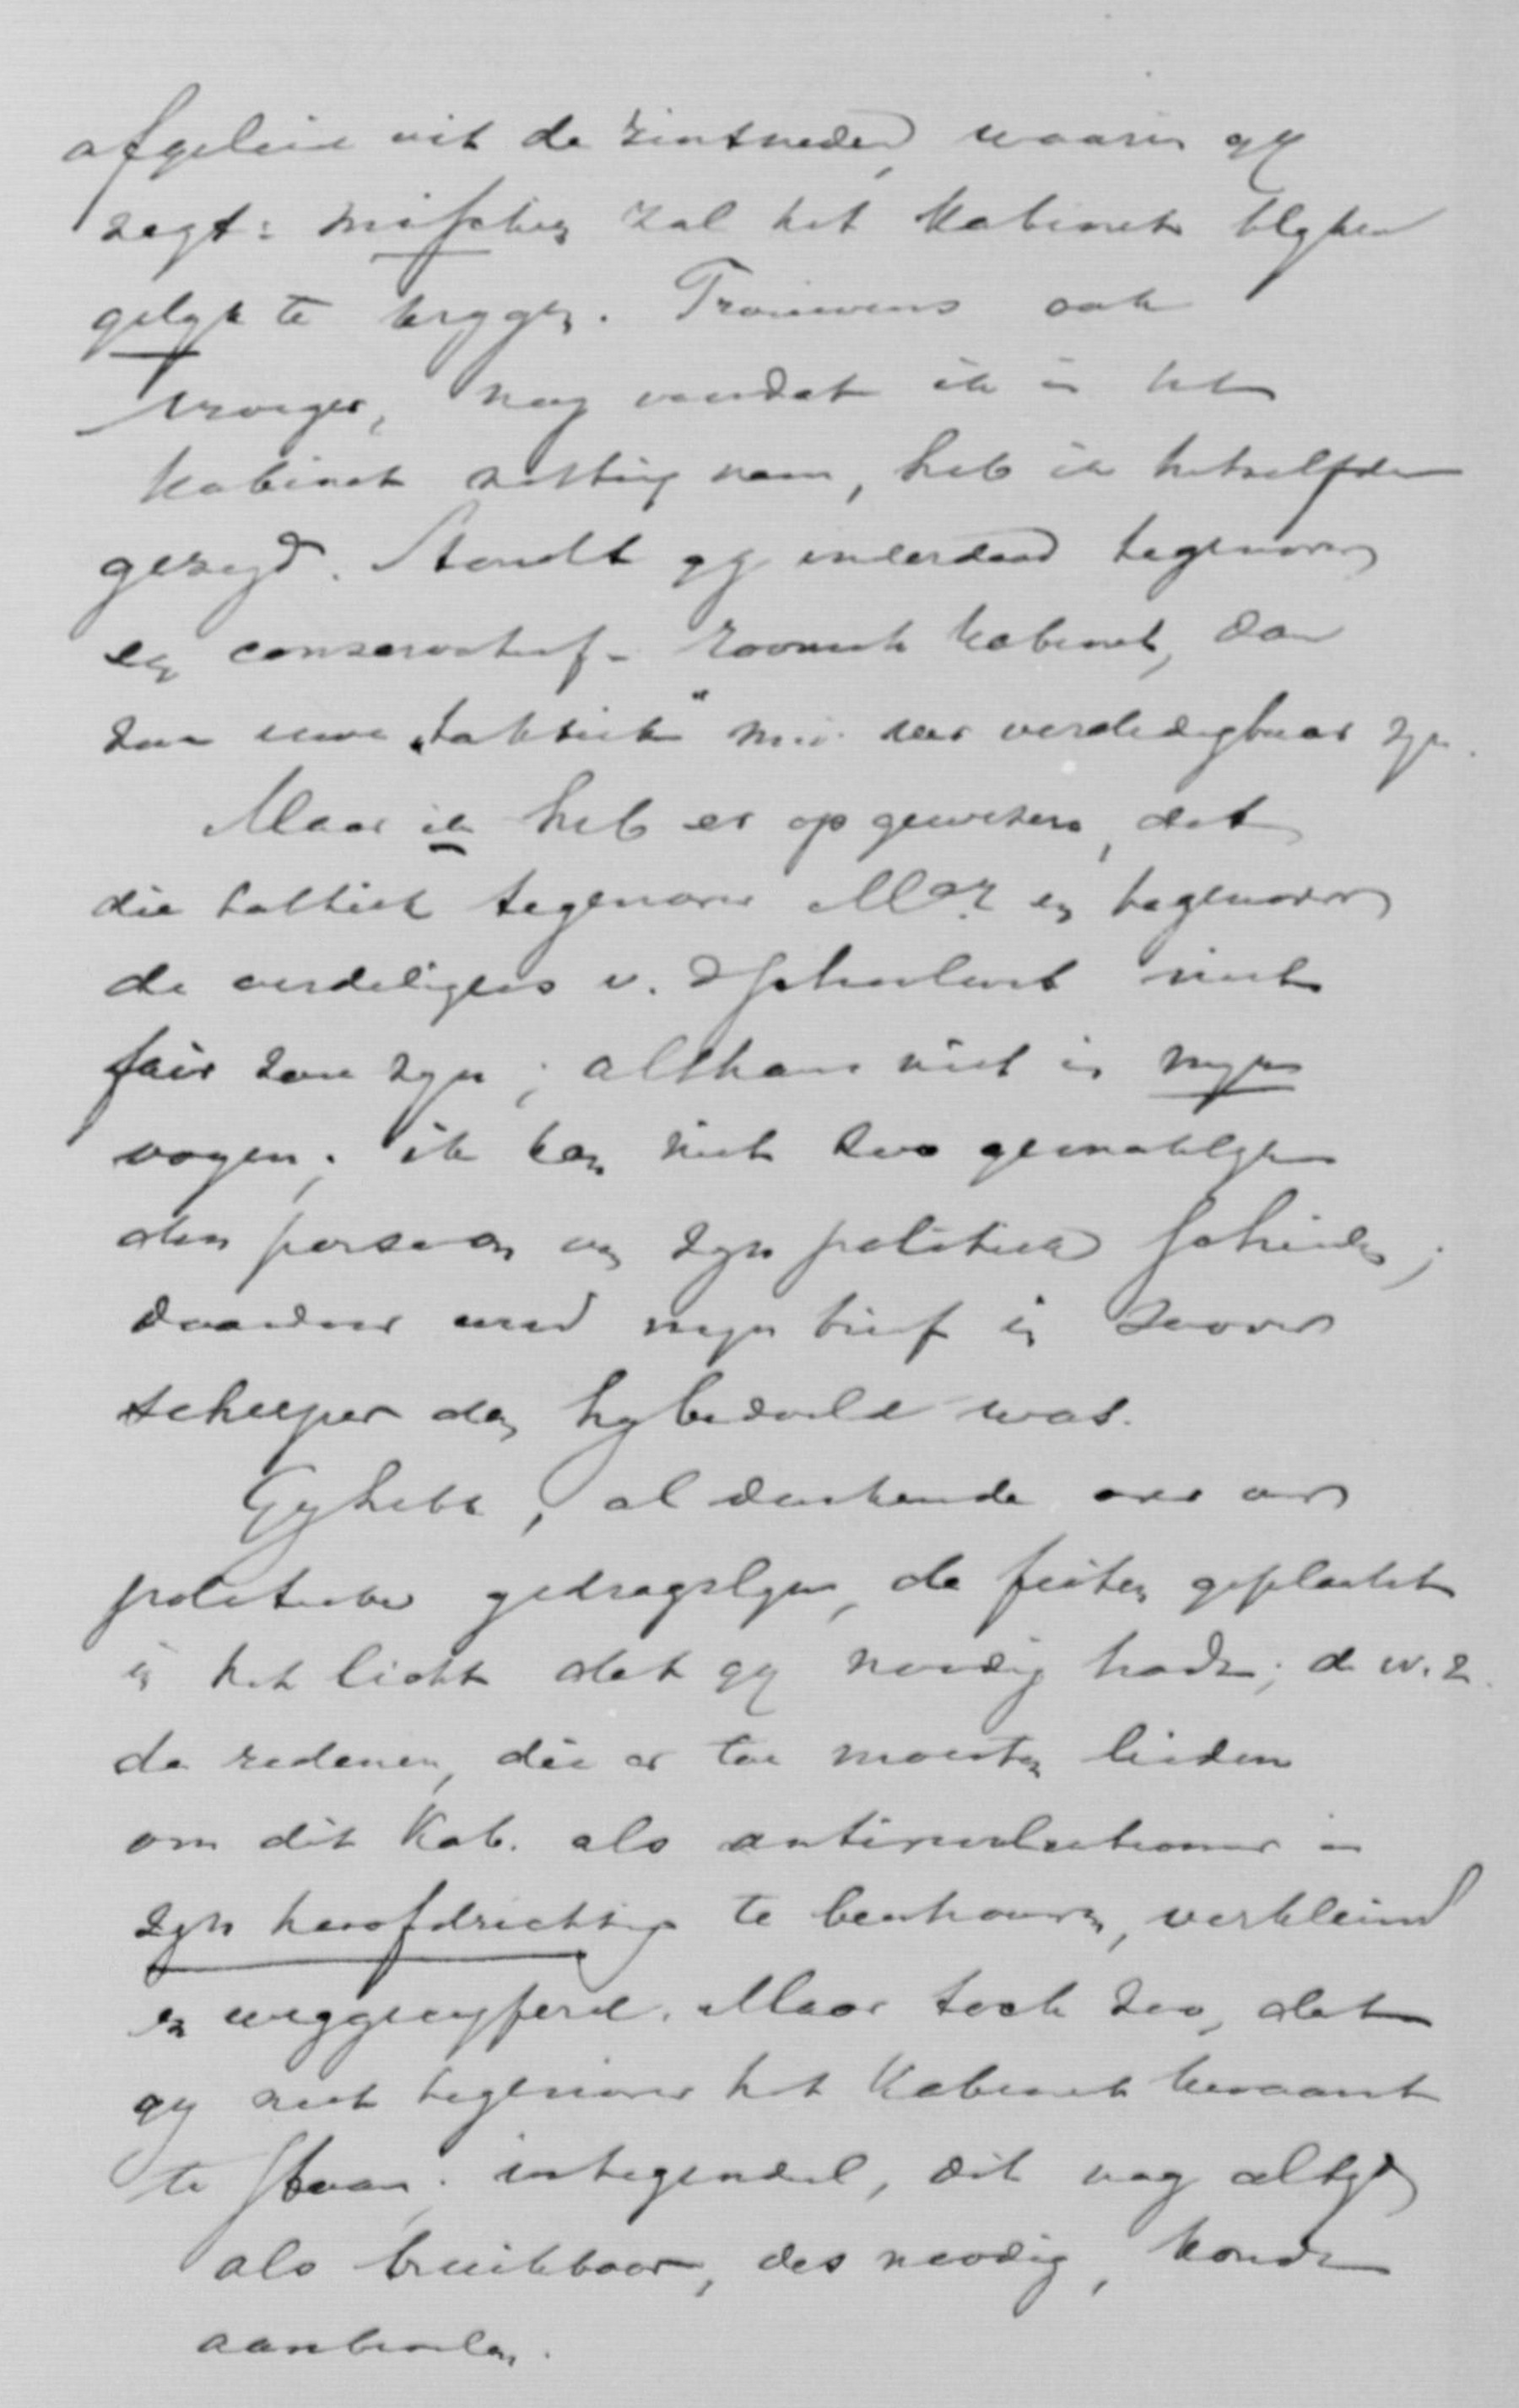 afgeleid uit de zinsneden, waarin gij
zegt: misschien zal het Kabinet blijken
gelijk te krijgen. Trouwens ook
vroeger, nog voordat ik in het
Kabinet zitting nam, heb ik hetzelfde
gezegd. Stondt gij inderdaad tegenover
een conservatief-roomsch Kabinet, dan
zou uwe „taktiek" mij zeer verdedigbaar zijn.
Maar ik heb er op gewezen, dat
die taktiek tegenover en tegenover
de verdedigers v. d schoolwet niet
fair zou zijn; althans niet in mijn
oogen; ik kan niet zoo gemakkelijk
den persoon van zijn politiek scheiden;
daardoor werd mijn brief in zoover
scherper dan hij bedoeld was.
Gij hebt, al denkende over onze
politieke gedragslijn, de feiten geplaatst
in het licht dat gij noodig hadt; d. w. z.
de redenen, die er toe moesten leiden
om dit Kab. als antirevolutionair in
zijn hoofdrichting te beschouwen, verkleind
en weggecijferd. Maar toch zoo, dat
gij niet tegenover het Kabinet kwaamt
te staan; integendeel, dit nog altijd
als bruikbaar, des noodig, kondt
aanbevelen.